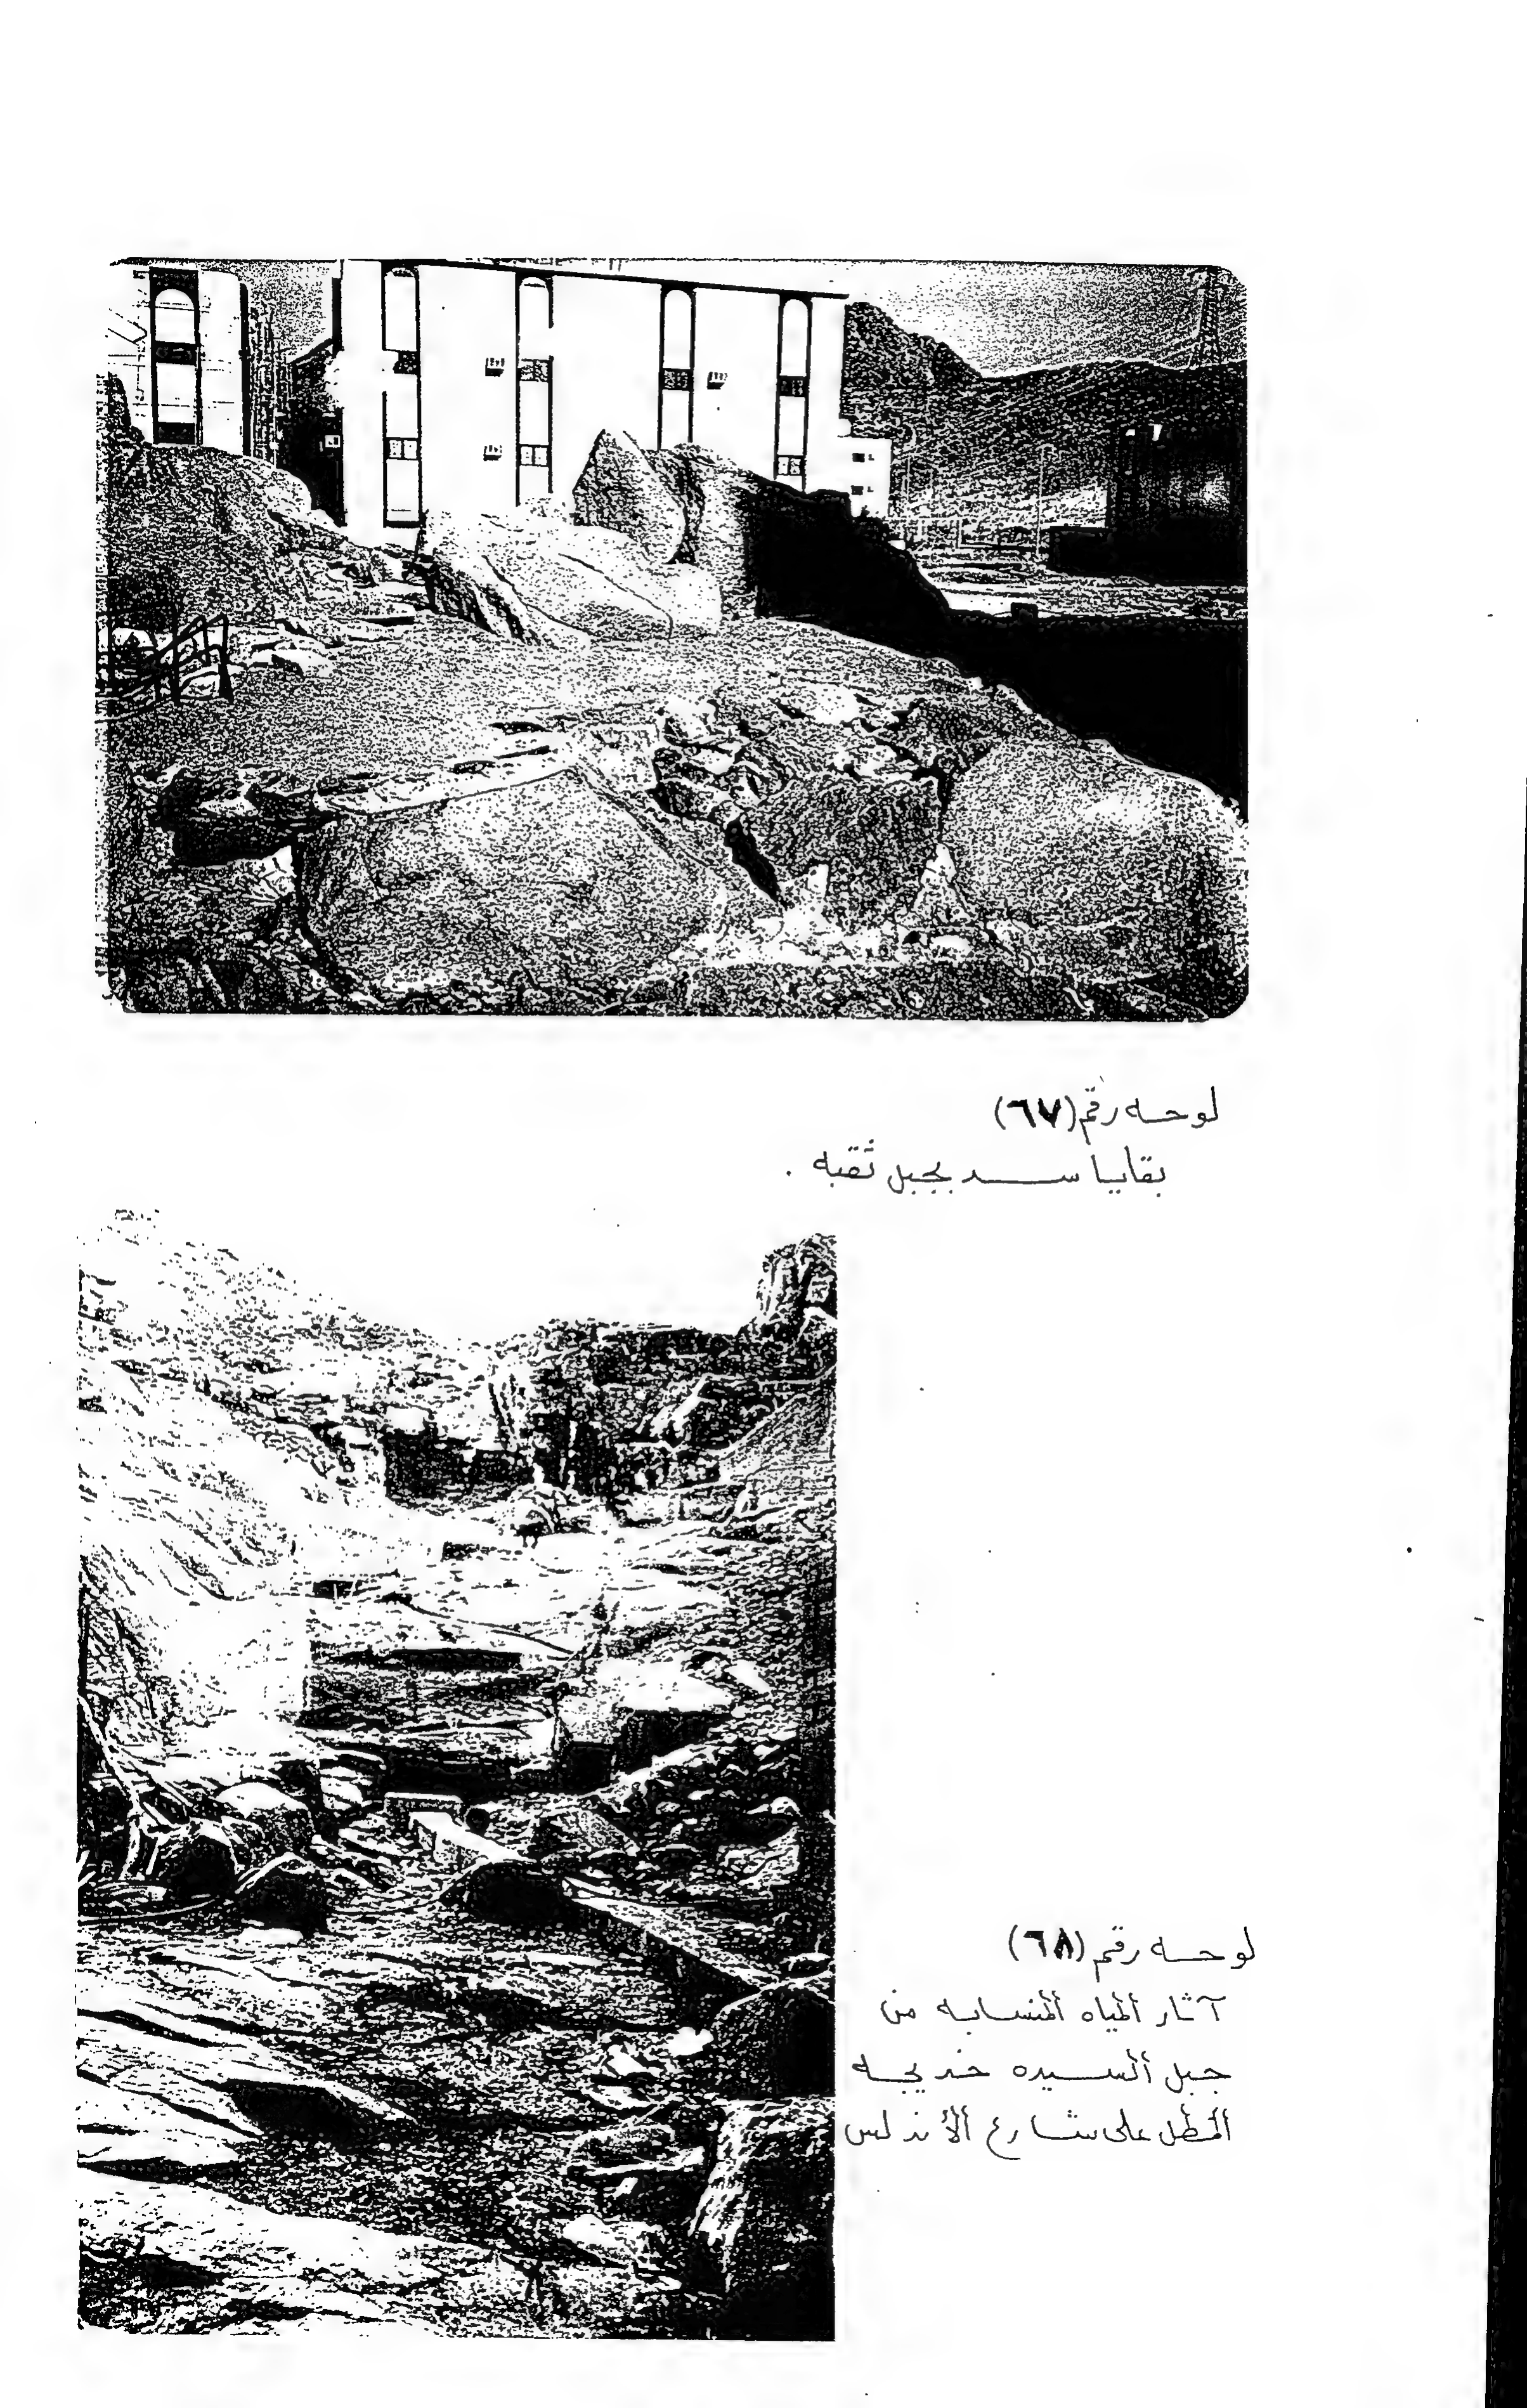 لوحه رقم (٦٧)
بقايا سد بجبل ثقبه .
لوحه رقم (٦٨)
آثار ألمياه ألمنسابه من
جبل ألسيده خديجه
المطل على شارع ألأندلس